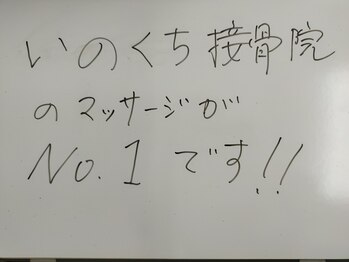 いのくち接骨院
のマッサージが
No.1です!!